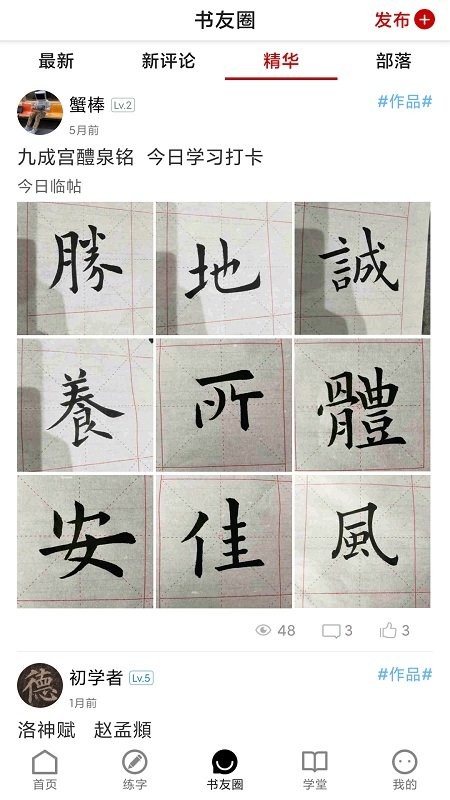 书友圈 发布
最新 新评论 精华 部落
蟹棒 Lv.2 #作品#
5月前
九成宫醴泉铭 今日学习打卡
今日临帖
勝 地 誠
養 所 體
安 佳 風
48 3 3
德 初学者 Lv.5 #作品#
1月前
洛神赋 赵孟頫
首页 练字 书友圈 学堂 我的